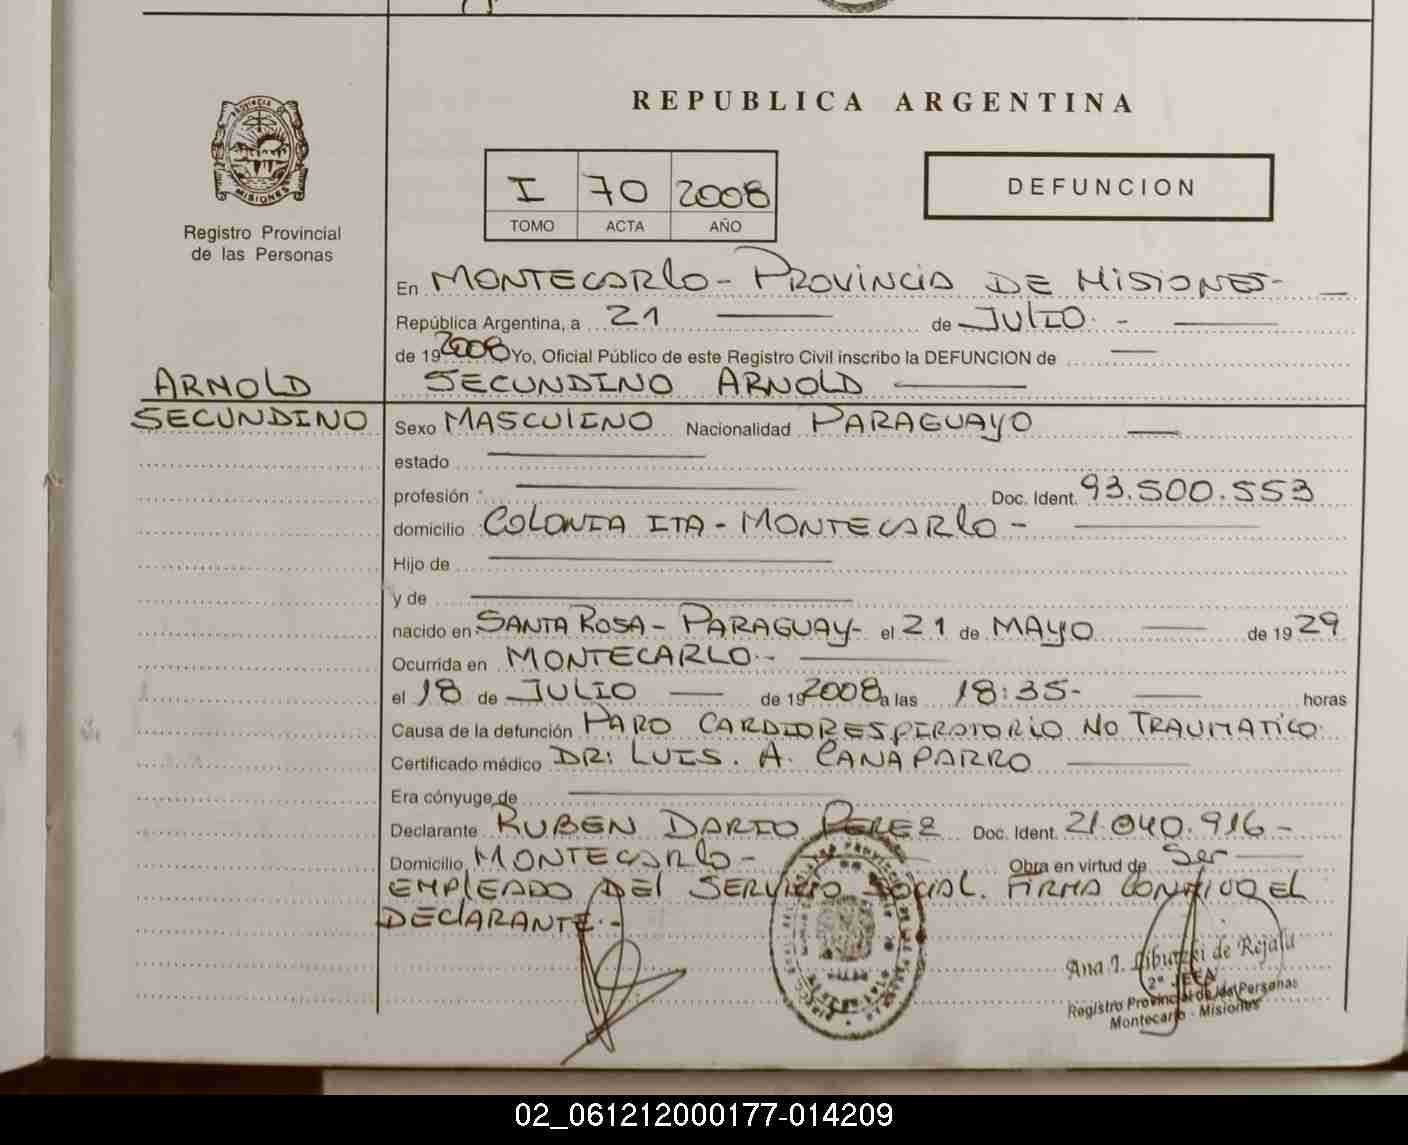 REPUBLICA ARGENTINA
PROVINCIA DE
MISIONES
Registro Provincial
de las Personas
I 70 2008
TOMO ACTA AÑO
DEFUNCION
En MONTECARLO - PROVINCIA DE MISIONES -
República Argentina, a 21 de JULIO -
de 19 2008 Yo, Oficial Público de este Registro Civil inscribo la DEFUNCION de
SECUNDINO ARNOLD
ARNOLD
SECUNDINO
Sexo MASCULINO Nacionalidad PARAGUAYO
estado
profesión Doc. Ident. 93.500.553
domicilio COLONIA ITA - MONTECARLO -
Hijo de
y de
nacido en SANTA ROSA - PARAGUAY - el 21 de MAYO de 19 29
Ocurrida en MONTECARLO -
el 18 de JULIO de 19 2008 a las 18:35 - horas
Causa de la defunción PARO CARDIORESPIRATORIO NO TRAUMATICO
Certificado médico DR: LUIS. A. CANAPARRO
Era cónyuge de
Declarante RUBEN DARIO PEREZ Doc. Ident. 21.040.916 -
Domicilio MONTECARLO - Obra en virtud de Ser
EMPLEADO DEL SERVICIO SOCIAL. FIRMA CONMIGO EL
DECLARANTE. -
Ana I. de Rejala
2° JEFA
Registro Provincial de las Personas
Montecarlo - Misiones
02_061212000177-014209